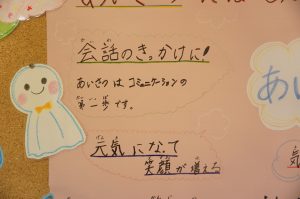 会話のきっかけに!
あいさつは コミュニケーションの
第一歩です。
元気になって
笑顔が増える
あい